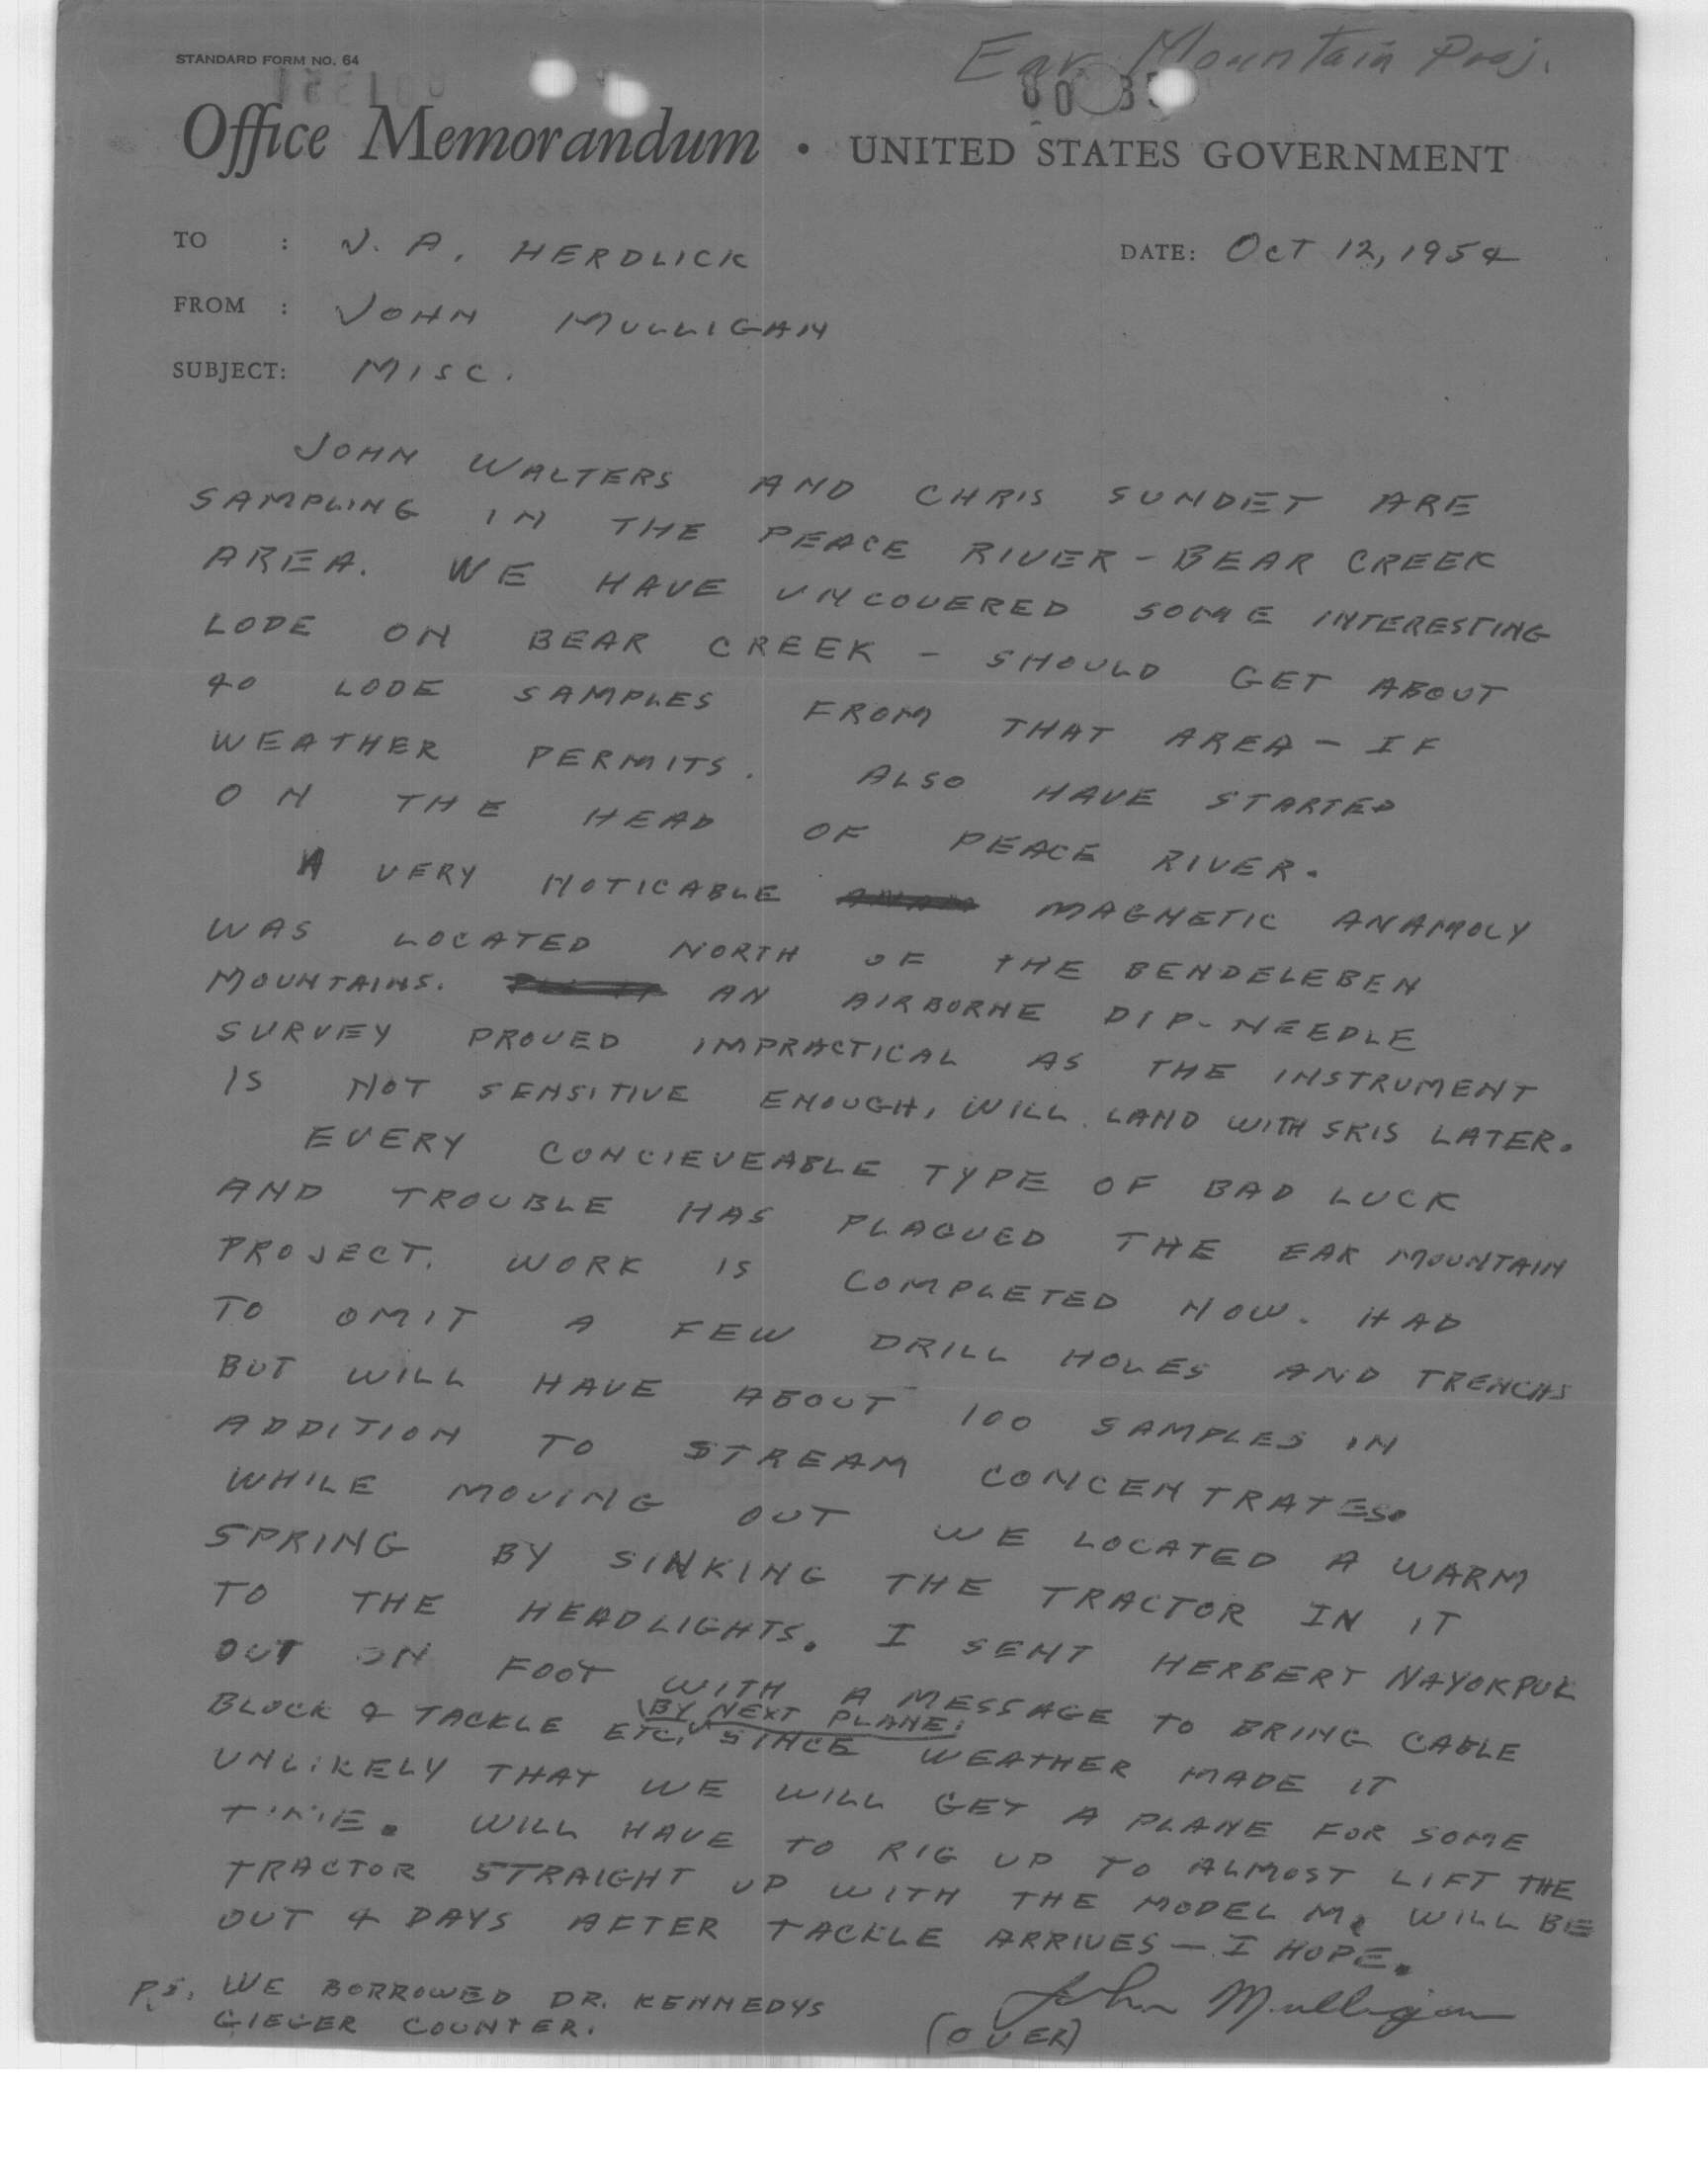 STANDARD FORM NO. 64
Ear Mountain Proj.
Office Memorandum • UNITED STATES GOVERNMENT
TO : J. A. HERDLICK DATE: OCT 12, 1954
FROM : JOHN MULLIGAN
SUBJECT: MISC.
JOHN WALTERS AND CHRIS SUNDET ARE
SAMPLING IN THE PEACE RIVER - BEAR CREEK
AREA. WE HAVE UNCOVERED SOME INTERESTING
LODE ON BEAR CREEK - SHOULD GET ABOUT
40 LODE SAMPLES FROM THAT AREA - IF
WEATHER PERMITS. ALSO HAVE STARTED
ON THE HEAD OF PEACE RIVER.
A VERY NOTICABLE MAGNETIC ANAMOLY
WAS LOCATED NORTH OF THE BENDELEBEN
MOUNTAINS. AN AIRBORNE DIP-NEEDLE
SURVEY PROVED IMPRACTICAL AS THE INSTRUMENT
IS NOT SENSITIVE ENOUGH, WILL LAND WITH SKIS LATER.
EVERY CONCIEVEABLE TYPE OF BAD LUCK
AND TROUBLE HAS PLAGUED THE EAR MOUNTAIN
PROJECT. WORK IS COMPLETED NOW. HAD
TO OMIT A FEW DRILL HOLES AND TRENCHS
BUT WILL HAVE ABOUT 100 SAMPLES IN
ADDITION TO STREAM CONCENTRATES.
WHILE MOVING OUT WE LOCATED A WARM
SPRING BY SINKING THE TRACTOR IN IT
TO THE HEADLIGHTS. I SENT HERBERT NAYOKPUK
OUT ON FOOT WITH A MESSAGE TO BRING CABLE
BLOCK & TACKLE ETC. BY NEXT PLANE. SINCE WEATHER MADE IT
UNLIKELY THAT WE WILL GET A PLANE FOR SOME
TIME. WILL HAVE TO RIG UP TO ALMOST LIFT THE
TRACTOR STRAIGHT UP WITH THE MODEL M. WILL BE
OUT 4 DAYS AFTER TACKLE ARRIVES - I HOPE.
John Mulligan
P.S. WE BORROWED DR. KENNEDYS
GIEGER COUNTER.
(OVER)